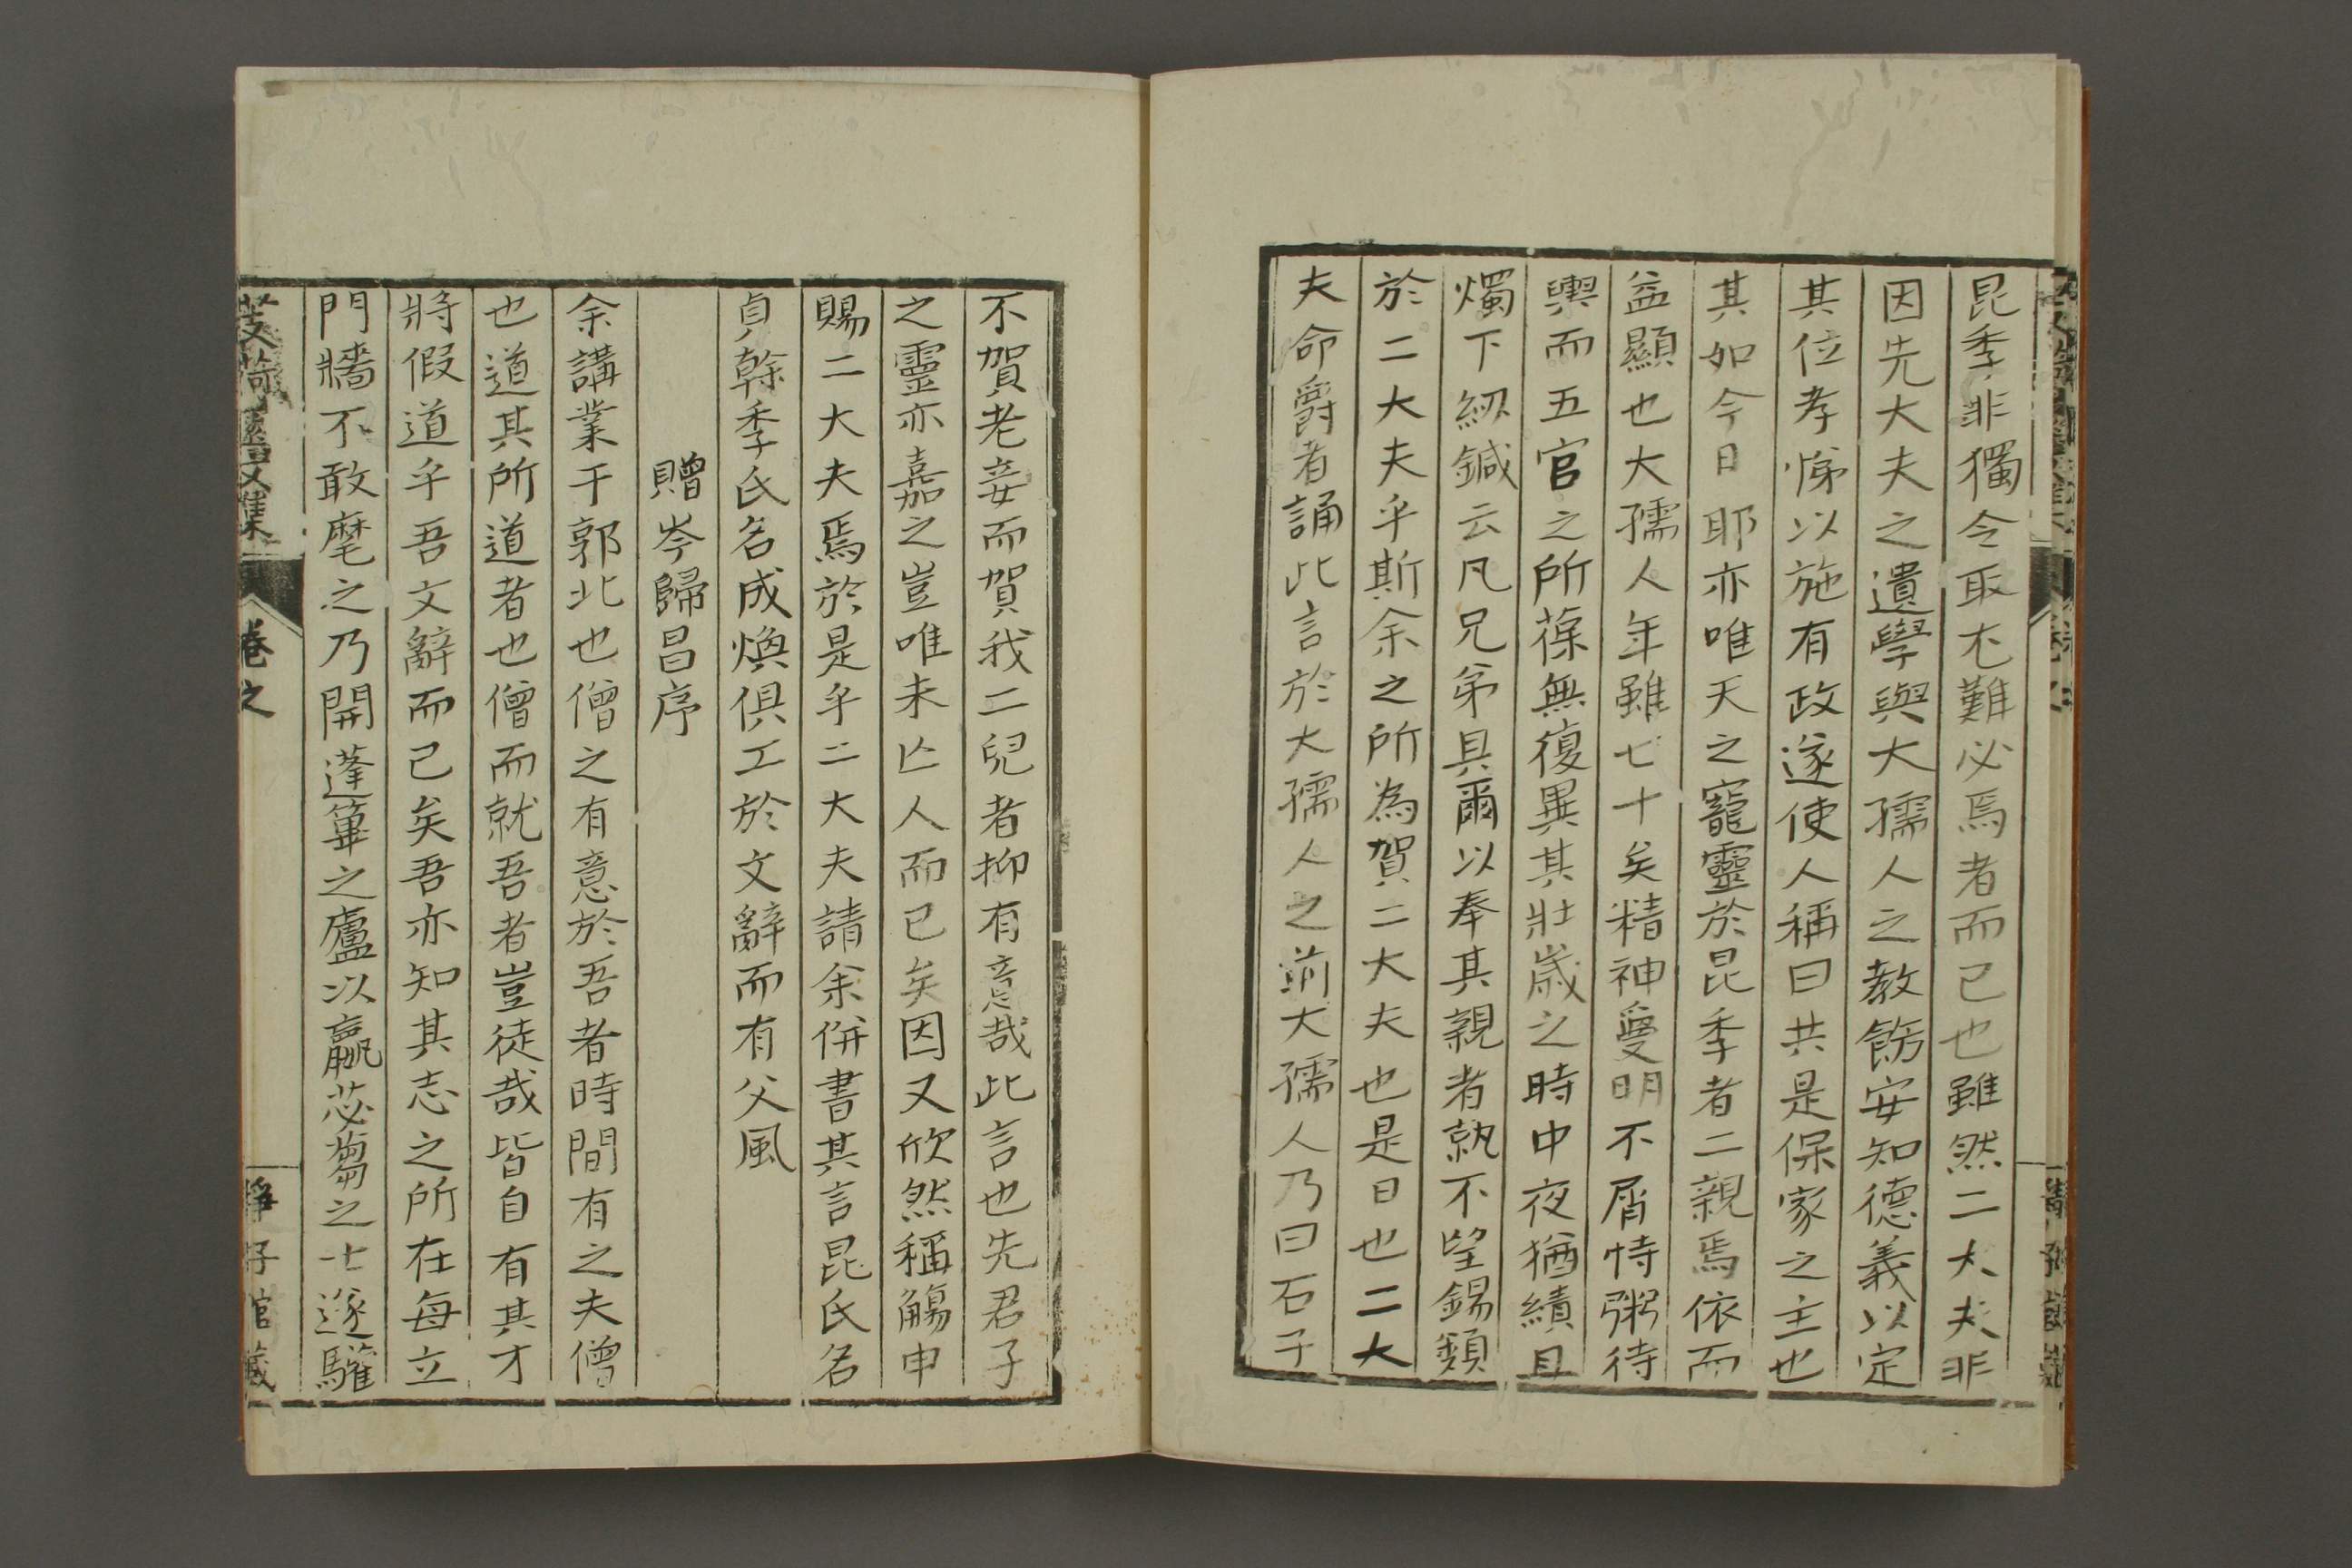 昆季非獨令取尤難必焉者而已也雖然二大夫非
因先大夫之遺學與大孺人之教飭安知德義以定
其位孝悌以施有政遂使人稱曰共是保家之主也
其如今日耶亦唯天之寵靈於昆季者二親焉依而
益顯也大孺人年雖七十矣精神爽明不屑恃粥待
輿而五官之所葆無復異其壯歲之時中夜猶績且
燭下紉鍼云凡兄弟具爾以奉其親者孰不望錫類
於二大夫乎斯余之所為賀二大夫也是日也二大
夫命爵者誦此言於大孺人之前大孺人乃曰石子
不賀老妾而賀我二兒者抑有意哉此言也先君子
之靈亦嘉之豈唯未亡人而已矣因又欣然稱觴申
賜二大夫焉於是乎二大夫請余併書其言昆氏名
貞幹季氏名成煥俱工於文辭而有父風
贈岑歸昌序
余講業于郭北也僧之有意於吾者時間有之夫僧
也道其所道者也僧而就吾者豈徒哉皆自有其才
將假道乎吾文辭而已矣吾亦知其志之所在每立
門牆不敢麾之乃開蓬篳之廬以羸苾蒭之士遂驩
芰荷園文集
卷之